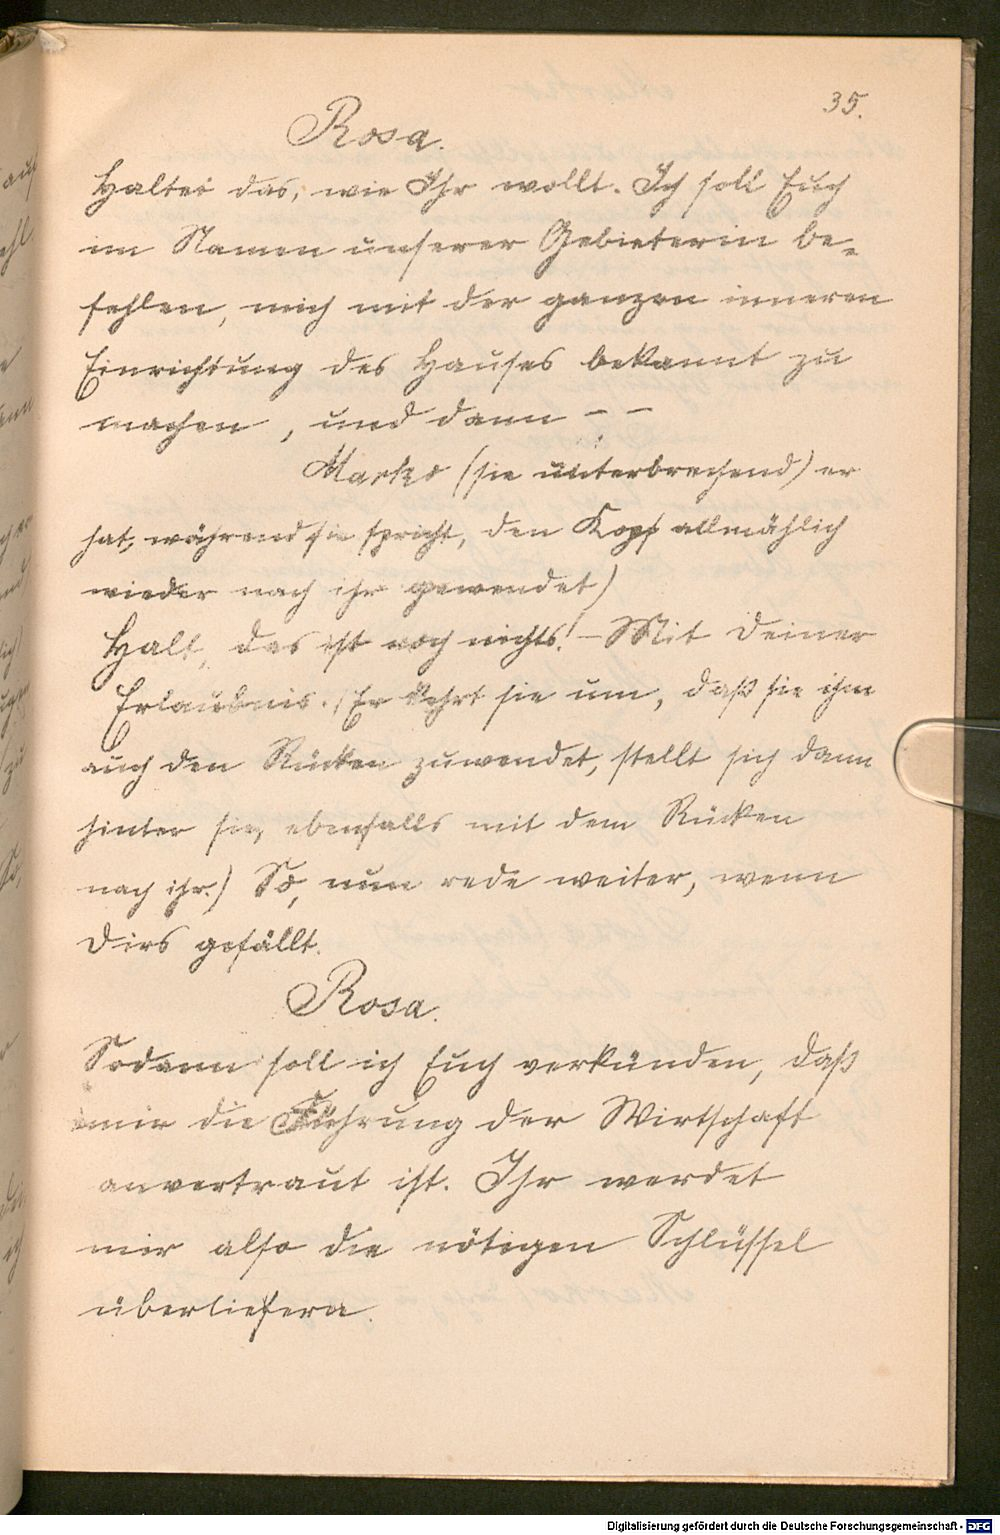 35.
Rosa.
Haltet das, wie Ihr wollt. Ich soll Euch
im Namen unserer Gebieterin be-
fehlen, mich mit der ganzen inneren
Einrichtung des Hauses bekannt zu
machen, und dann – –
Marko (sie unterbrechend) er
hat, während sie spricht, den Kopf allmählich
wieder nach ihr gewendet)
Halt, das ist noch nichts! – Mit Deiner
Erlaubnis. (Er kehrt sie um, daß sie ihm
auch den Rücken zuwendet, stellt sich dann
hinter sie, ebenfalls mit dem Rücken
nach ihr.) So, nun rede weiter, wenn
Dirs gefällt.
Rosa.
Sodann soll ich Euch verkünden, daß
mir die Führung der Wirtschaft
anvertraut ist. Ihr werdet
mir also die nötigen Schlüssel
überliefern.
Digitalisierung gefördert durch die Deutsche Forschungsgemeinschaft - DFG